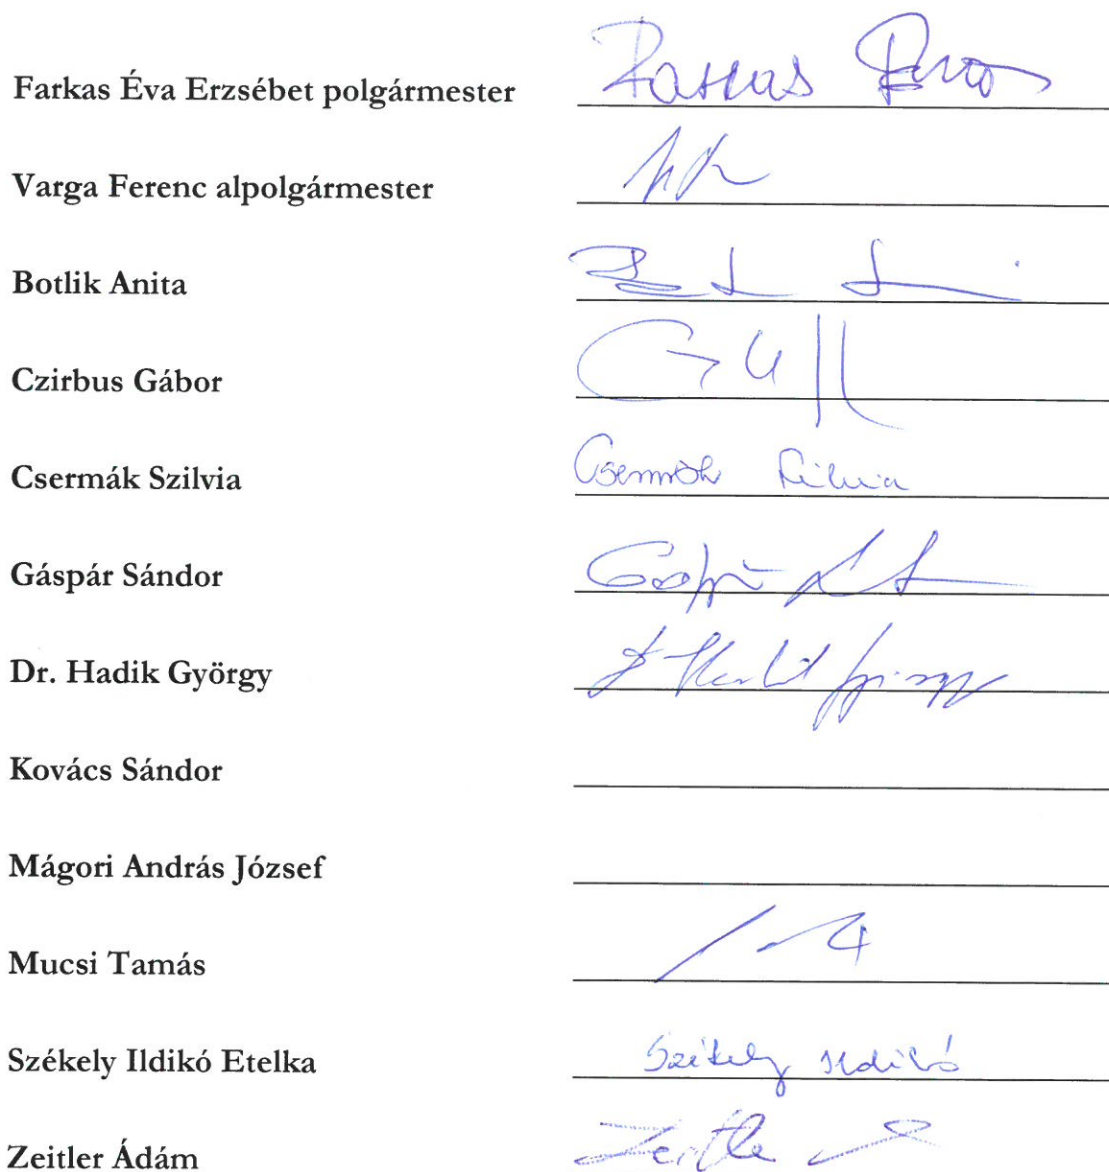 Farkas Éva Erzsébet polgármester Farkas Éva
Varga Ferenc alpolgármester
Botlik Anita
Czirbus Gábor
Csermák Szilvia Csermák Szilvia
Gáspár Sándor Gáspár
Dr. Hadik György Dr Hadik György
Kovács Sándor
Mágori András József
Mucsi Tamás
Székely Ildikó Etelka Székely Ildikó
Zeitler Ádám Zeitler